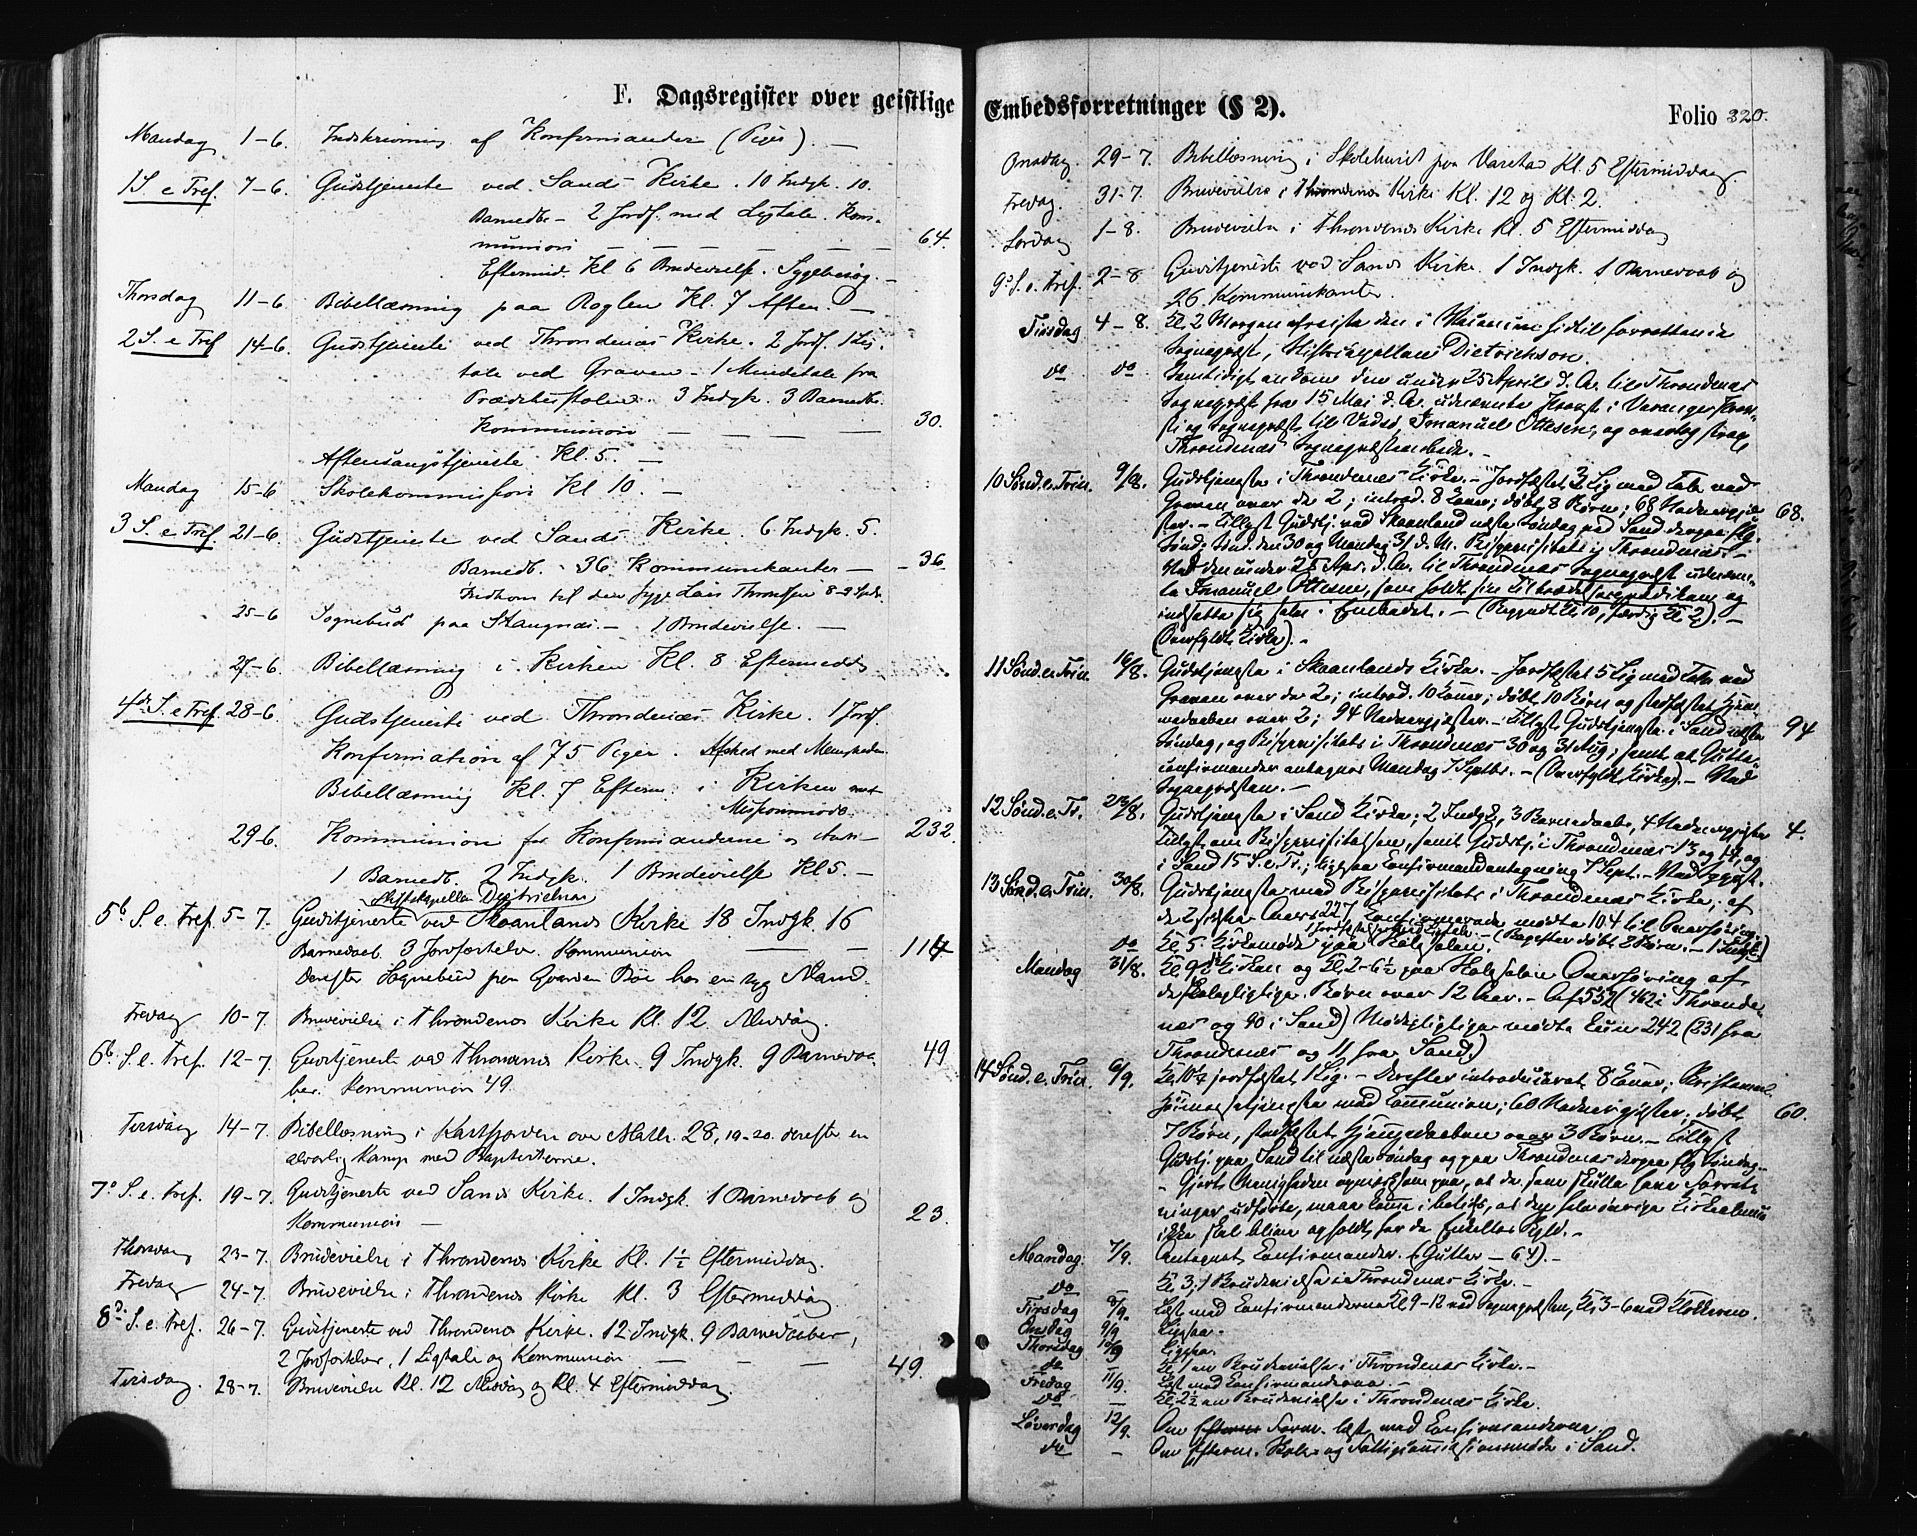 F. Dagsregister over geistlige
Mandag 1-6. Indskrivning af Konfirmander (Piger). —
1 S. e Tref. 7-6. Gudstjeneste ved Sands Kirke. 10 Indgk. 10.
Barnedb. – 2 Jordf. med Ligtale. Kom-
munion — — — — — 64.
Eftermid. Kl 6 Brudevielse. Sygebesøg. —
Thorsdag 11-6. Bibellæsning paa Roglen Kl. 7 Aften. —
2 S. e Tref 14-6. Gudstjeneste ved Throndenæs Kirke. 2 Jordf. 1 Lig-
tale ved Graven – 1 Mindetale fra
Prædikestolen. 3 Indgk. 3 Barnedb.
Kommunion — — — — 30.
Aftensangstjeneste Kl. 5. —
Mandag 15-6 Skolekommission Kl 10. —
3 S. e Tref. 21-6. Gudstjeneste ved Sands Kirke. 6 Indgk. 5.
Barnedb. – 36 Kommunikanter — 36
til den syge Lars
25-6 Sognebud paa Stangnæs. – 1 Brudevielse. —
27-6. Bibellæsning i Kirken Kl. 8 Eftermidd.
4de S. e Tref. 28-6. Gudstjeneste ved Throndenæs Kirke. 1 Jordf.
Konfirmation af 75 Piger. Afsked med Menigheden
Bibellæsning Kl. 7 Efterm. i Kirken med
Missionsmøde.
29-6. Kommunion for Konfirmanderne og 232.
1 Barnedb. 2 Indgk. 1 Brudevielse Kl 5. —
Stiftskapellan Dietrichson
5te S. e. Tref. 5-7. Gudstjeneste ved Skaanlands Kirke 18 Indgk. 16
Barnedaab 3 Jordfæstelser Kommunion — — 114
Derefter Sognebud paa Gaarden Bøe hos en syg Mand
Fredag 10-7. Brudevielse i Throndenes Kirke Kl. 12 Middag.
6te S. e. Tref. 12-7. Gudstjeneste ved Throndenes Kirke. 9 Indgk. 9 Barnedaa- 49
ber. Kommunion 49.
Tirsdag 14-7. Bibellæsning i Kasfjorden over Math. 28, 19-20. derefter en
alvorlig Kamp med Baptisterne.
7de S. e. Tref. 19-7. Gudstjeneste ved Sands Kirke. 1 Indgk. 1 Barnedaab og
Kommunion — 23.
Thorsdag 23-7. Brudevielse i Throndenes Kirke Kl. 1½ Eftermiddag.
Fredag 24-7. Brudevielse i Throndenes Kirke Kl. 3 Eftermiddag
8de S. e. Tref. 26-7. Gudstjeneste ved Throndenes Kirke. 12 Indgk. 9 Barnedaaber,
2 Jordfæstelser, 1 Ligtale og Kommunion — — — 49.
Tirsdag. 28-7. Brudevielse Kl. 12 Middag og Kl. 4 Eftermiddag.
Embedsforretninger (§ 2). Folio 320.
Onsdag. 29-7. Bibellæsning i Skolehuset paa Kl. 5 Eftermiddag
Fredag. 31-7. Brudevielse i Throndenes Kirke Kl. 12 og Kl. 2.
Lørdag 1-8. Brudevielse i Throndenes Kirke Kl. 5 Eftermiddag
9de S. e. Tref. 2-8 Gudstjeneste ved Sands Kirke. 1 Indgk. 1 Barnedaab og
26 Kommunikanter.
Tirsdag 4-8. Kl 2 Morgen afreiste den i Vacancen hidtil forrettende
Sognepræst, Stiftskapellan Dietrichson.
do do Samtidigt ankom den under 25 April d. A. til Throndenæs
Sognepræst fra 15 Mai d. A. udnævnte Provst i Varanger Prov-
sti og Sognepræst til Vadsø, Emanuel Ottesen, og overtog strax
Throndenæs Sognepræstembede. –
10 Sønd. e. Trin. 9/8. Gudstjeneste i Throndenæs Kirke. – Jordfæstet 3 Lig med Tale ved
Graven over de 2; introd. 8 Koner; døbt 8 Børn; 68 Nadvergjæ- 68.
ster. – Tillyst Gudstj. ved Skaanland næste Søndag ved Sand derpaa flg.
Sønd; Sønd. den 30 og Mandag 31 d. M. Bispevisitats i Throndenæs. –
Ved den under 25 Apr. d. A. til Throndenæs Sognepræst udnævn-
te Emanuel Ottesen, som holdt sin Tiltrædelsesprædiken og
indsatte sig selv i Embedet. – (Begyndt Kl 10, færdig Kl 2). –
(Overfyldt Kirke). –
11 Sønd. e. Trin. 16/8. Gudstjeneste i Skaanlands Kirke. – Jordfæstet 5 Lig med Tale ved
Graven over de 2; introd. 10 Koner; døbt 10 Børn og stadfæstet Hjem-
medaaben over 2; 94 Nadvergjæster. – Tillyst Gudstjeneste i Sand næste 94
Søndag, og Bispevisitats i Throndenæs 30 og 31 Aug; samt at Gutte-
confirmander antages Mandag 7 Septbr. – (Overfyldt Kirke). – Ved
Sognepræsten. –
12 Sønd. e. Tr. 23/8. Gudstjeneste i Sand Kirke; 2 Indgk, 3 Barnedaab, 4 Nadvergjæster 4.
Tillyst om Bispevisitatsen, samt Gudstj. i Throndenæs 13 og 14, og
i Sand 15 S. e. Tr.; ligesaa Confirmandantagning 7 Sept. – Ved Sognepr.
13 Sønd. e. Trin. 30/8. Gudstjeneste med Bispevisitats i Throndenæs Kirke; af
de 2 sidste Aars 227 Confirmerede mødte 104 til Overhøring.
1 Jordfæstelse ved Kirken. – (Bagefter døbt 2 Børn. – 1 Indgk)
do Kl 5 Kirkemøde paa Skolesalen.
Mandag 31/8. Kl 9 i Kirken og Kl. 2-6½ paa Skolesalen Overhøring af
de skolepligtige Børn over 12 Aar. – Af 552 (462 i Thronde-
næs og 90 i Sand) Mødepligtige mødte kun 242 (231 fra
Throndenæs og 11 fra Sand.)
14 Sønd. e. Trin. 6/9. Kl. 10½ jordfæstet 1 Lig. – Derefter introduceret 8 Koner;
med Communion; 60 Nadvergjæster; døbt 60.
7 Børn, stadfæstet Hjemmedaaben over 3 Børn. – Tillyst
Gudstj. paa Sand til næste Søndag og paa Throndenæs derpaa flg Søndag. –
– Gjorde Menigheden opmærksom paa, at de, som skulle have Forret-
ninger udførte, maae komme i betids, at den hele øvrige Kirkealmue
ikke skal blive opholdt for de Enkeltes Skyld. –
Mandag 7/9. Antaget Confirmander. (Gutter – 64). –
do — Kl 3; 1 Brudevielse i Throndenæs Kirke. –
Tirsdag 8/9. Læst med Confirmanderne Kl 9-12 ved Sognepræsten, Kl; 3-6 med Klokkeren.
Onsdag 9/9 Ligesaa.
Thorsdag 10/9 Ligesaa.
do — Kl 1 en Brudevielse i Throndenæs Kirke. –
Fredag 11/9. Læst med Confirmanderne. –
do — Kl 2½ en Brudevielse i Throndenæs Kirke.
Løverdag 12/9. Om Form. læst med Confirmanderne.
do — Om Efterm. Skole- og Fattigcommissionsmøde i Sand.